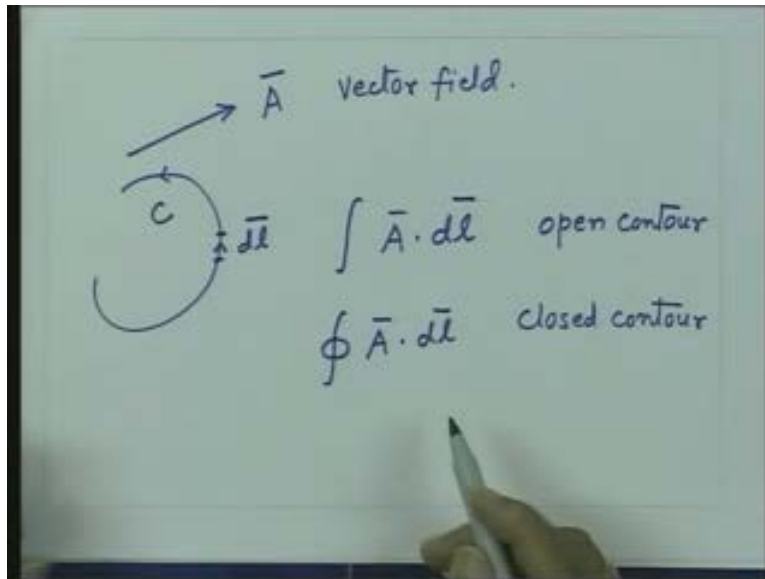 A̅ vector field.
C
d̅l̅ ∫ A̅ · d̅l̅ open contour
∮ A̅ · d̅l̅ closed contour